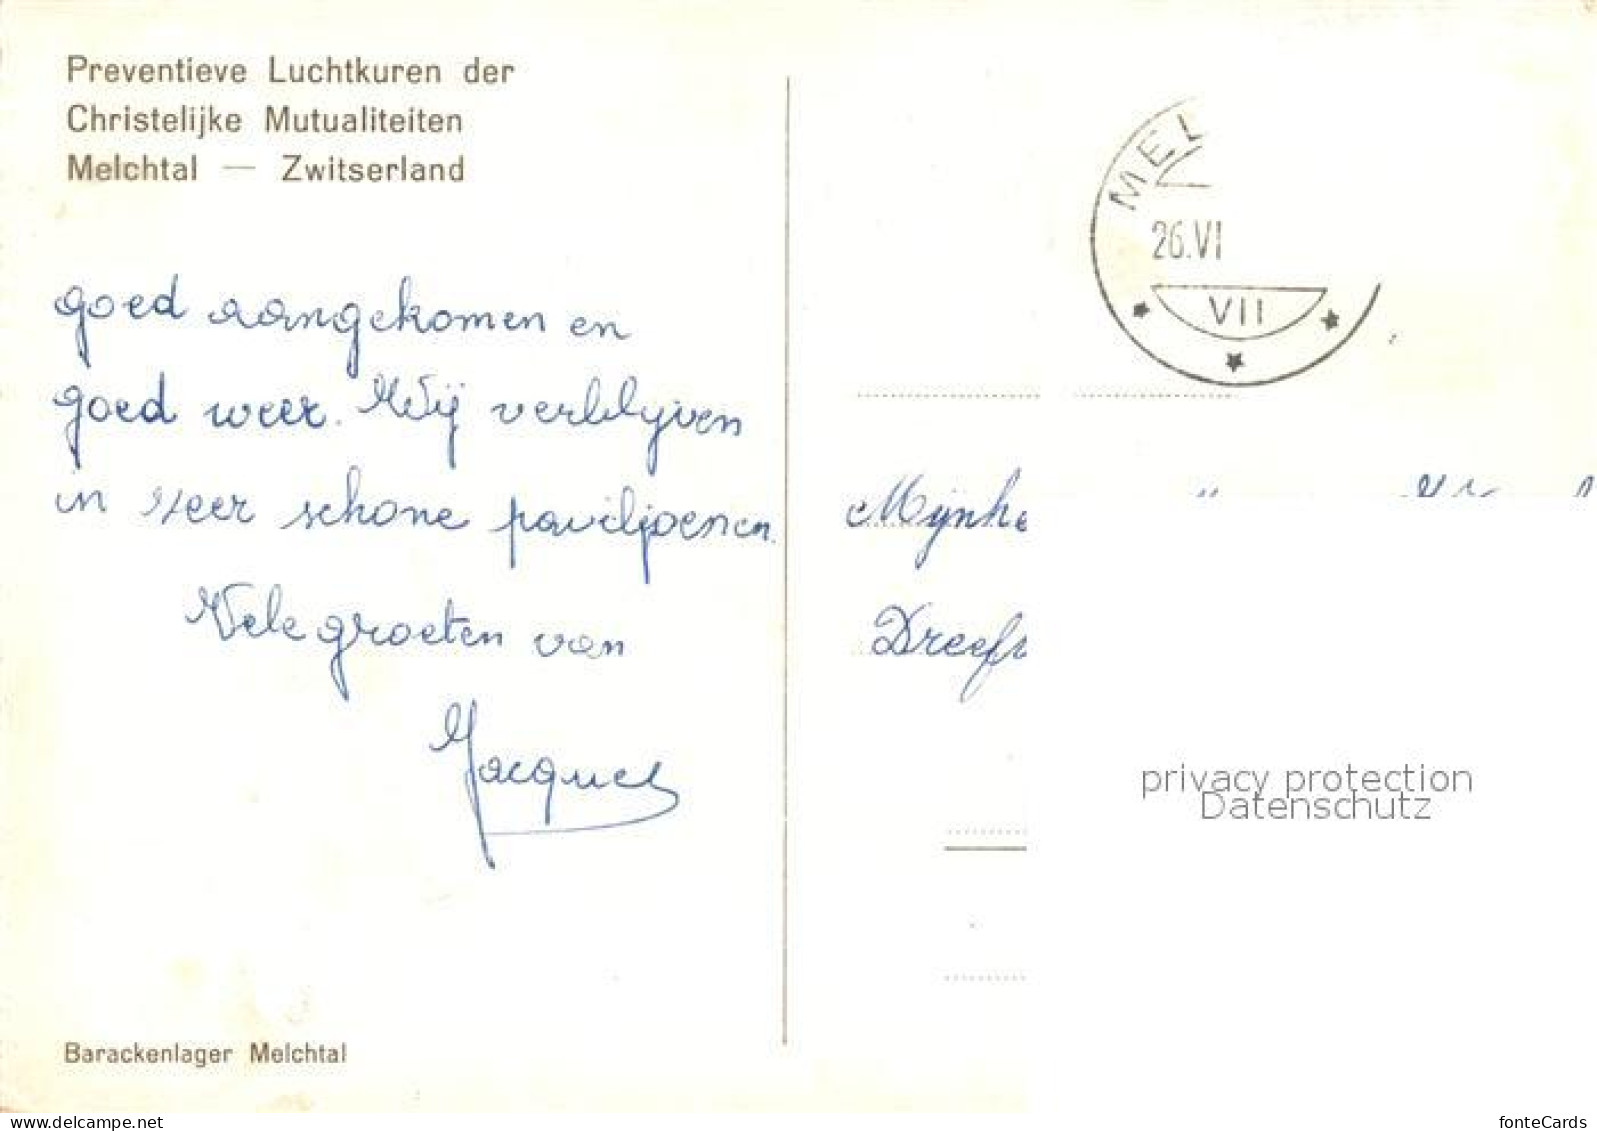 Preventieve Luchtkuren der
Christelijke Mutualiteiten
Melchtal — Zwitserland
goed aangekomen en
goed weer. Wij verblijven
in zeer schone paviljoenen.
Vele groeten van
Jacques
Barackenlager Melchtal
MEL
26.VI
VII
Mijnhe
Dreef
privacy protection
Datenschutz
www.delcampe.net
fonteCards